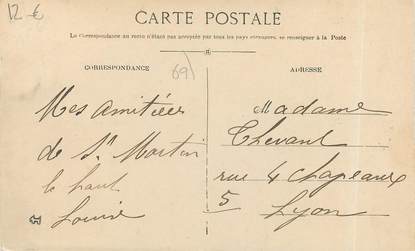 12 €
CARTE POSTALE
La Correspondance au recto n'étant pas acceptée par tous les pays étrangers, se renseigner à la Poste
CORRESPONDANCE
69)
ADRESSE
Mes Amitiées
de St Martin
le haut
Louise
Madame
Thevant
rue 4 Chapeaux
5
Lyon